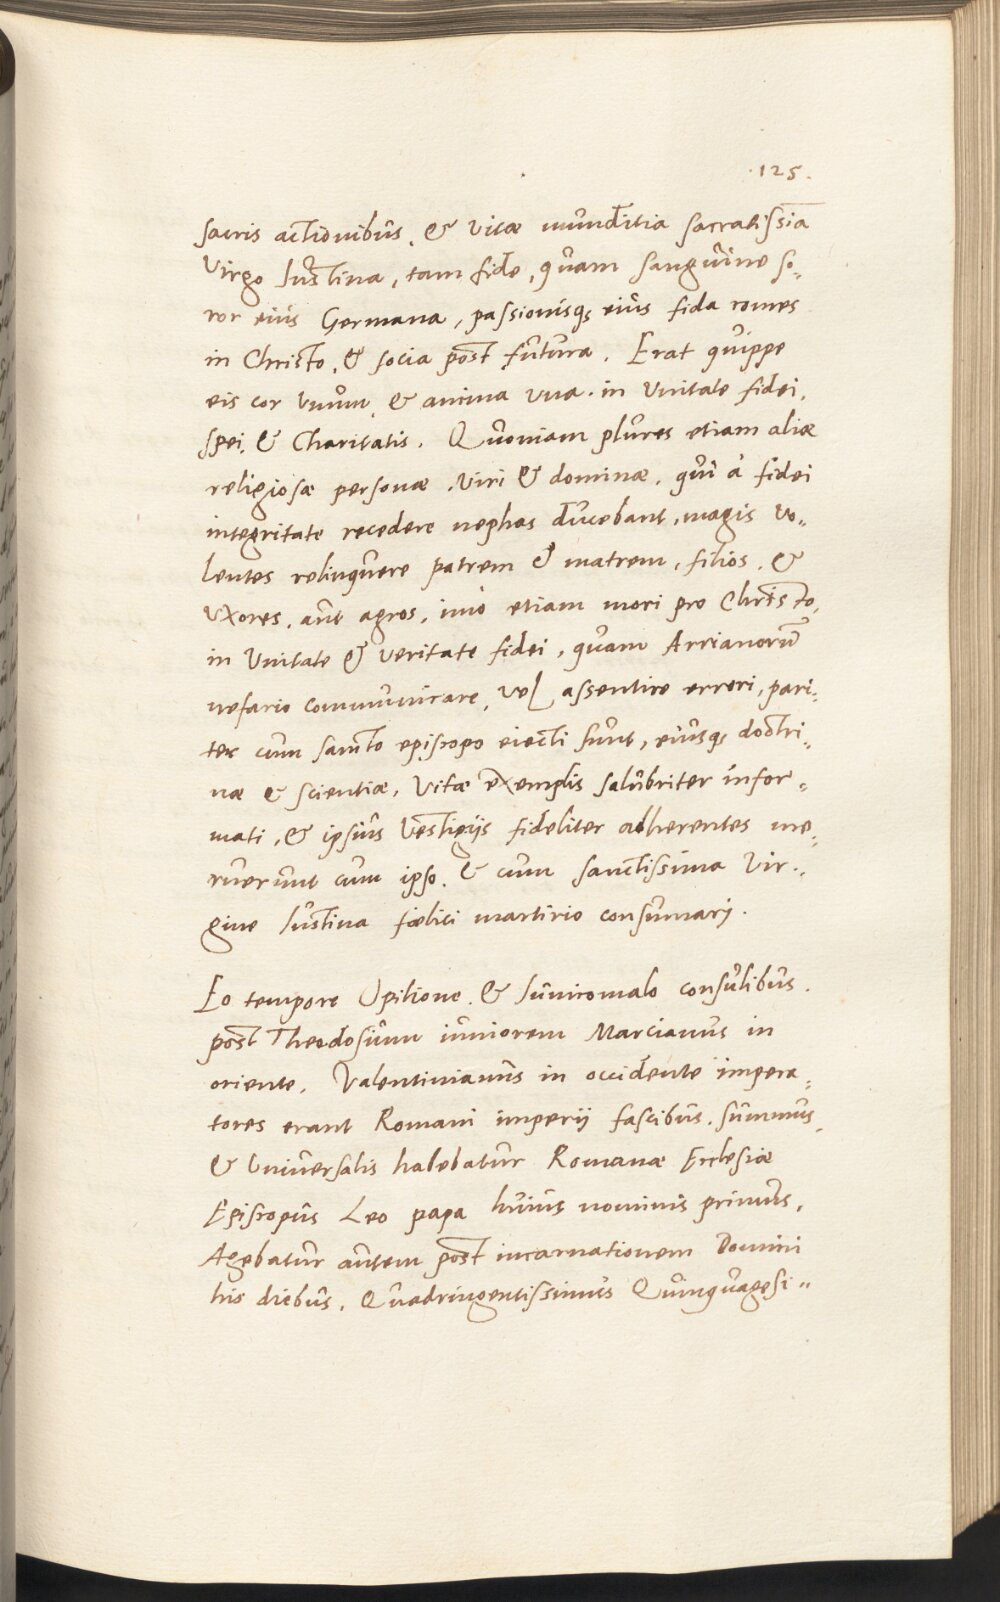 .125.
sacris actionibus, & vitæ munditia sacratissīa
Virgo Iustina, tam fide, quam sanguine so„
ror eius Germana, passionisq; eius fida comes
in Christo, & socia post futura. Erat quippe
eis cor vnum, & anima vna. in vnitate fidei,
spei, & Charitatis. Quoniam plures etiam aliæ
religiosæ personæ, viri & dominæ, qui à fidei
integritate recedere nephas ducebant, magis vo„
lentes relinquere patrem & matrem, filios, &
vxores, aut agros, imò etiam mori pro Christo,
in vnitate & veritate fidei, quam Arrianorū
nefario communicare, vel assentire errori, pari„
ter cum sancto episcopo eiecti sunt, eiusq; doctri„
næ & scientiæ, vitæ exemplis salubriter infor„
mati, & ipsius vestigijs fideliter adherentes me„
ruerunt cum ipso, & cum sanctissima Vir„
gine Iustina fœlici martirio consumari.
Eo tempore Opilione, & Iuniromalo consulibus.
post Theodosium iuniorem Marcianus in
oriente, Valentinianus in occidente impera„
tores erant Romani imperij fascibus. summus,
& vniuersalis habebatur Romanæ Ecclesiæ
Episcopus Leo papa huius nominis primus,
Agebatur autem post incarnationem Domini
his diebus, Quadringentissimus Quinquagesi„